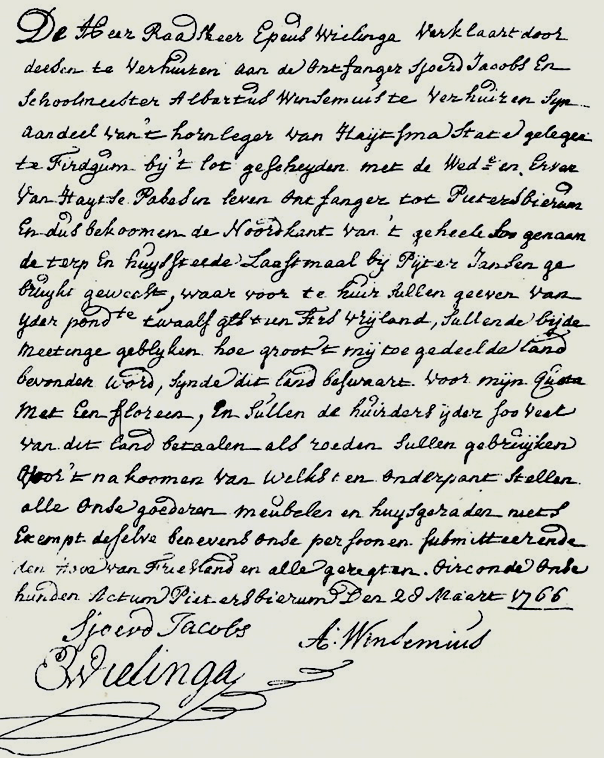 De Heer Raadsheer Epeus Wielinga Verklaart door
deesen te Verhuiren aan de Ontfanger Sjoerd Jacobs En
Schoolmeester Albartus Winsemius te Verhuiren Syn
aandeel van't hornleger van Haijtsma State gelegen
te Firdgum bij't lot gescheyden met de Wed:e en Erven
Van Haytse Pabes in leven Ontfanger tot Pietersbierum
En dus bekoomen de Noordkant van't geheele soo genaam
de terp En huysstede Laastmaal bij Pijter Jansen ge
bruykt geweest, waar voor te huir sullen geeven van
yder pondte twaalf glts un Firs vrijland, Sullende bij de
meetinge geblyken hoe groot 't mij toe gedeelde land
bevonden word, Synde dit land beswaart voor mijn Quota
Met Een floreen, En Sullen de huirders yder soo veel
van dit land betaalen als roeden Sullen gebruijken
Voor't na koomen van Welks ten Onderpant Stellen
alle Onse goederen meubelen en huysgeraden niets
Exempt deselve benevens Onse persoonen submitteerende
den Hove van Friesland en alle geregten. Oirconde Onse
handen Actum Pietersbierum Den 28 Maart 1766
Sjoerd Jacobs
A: Winsemius
EWielinga